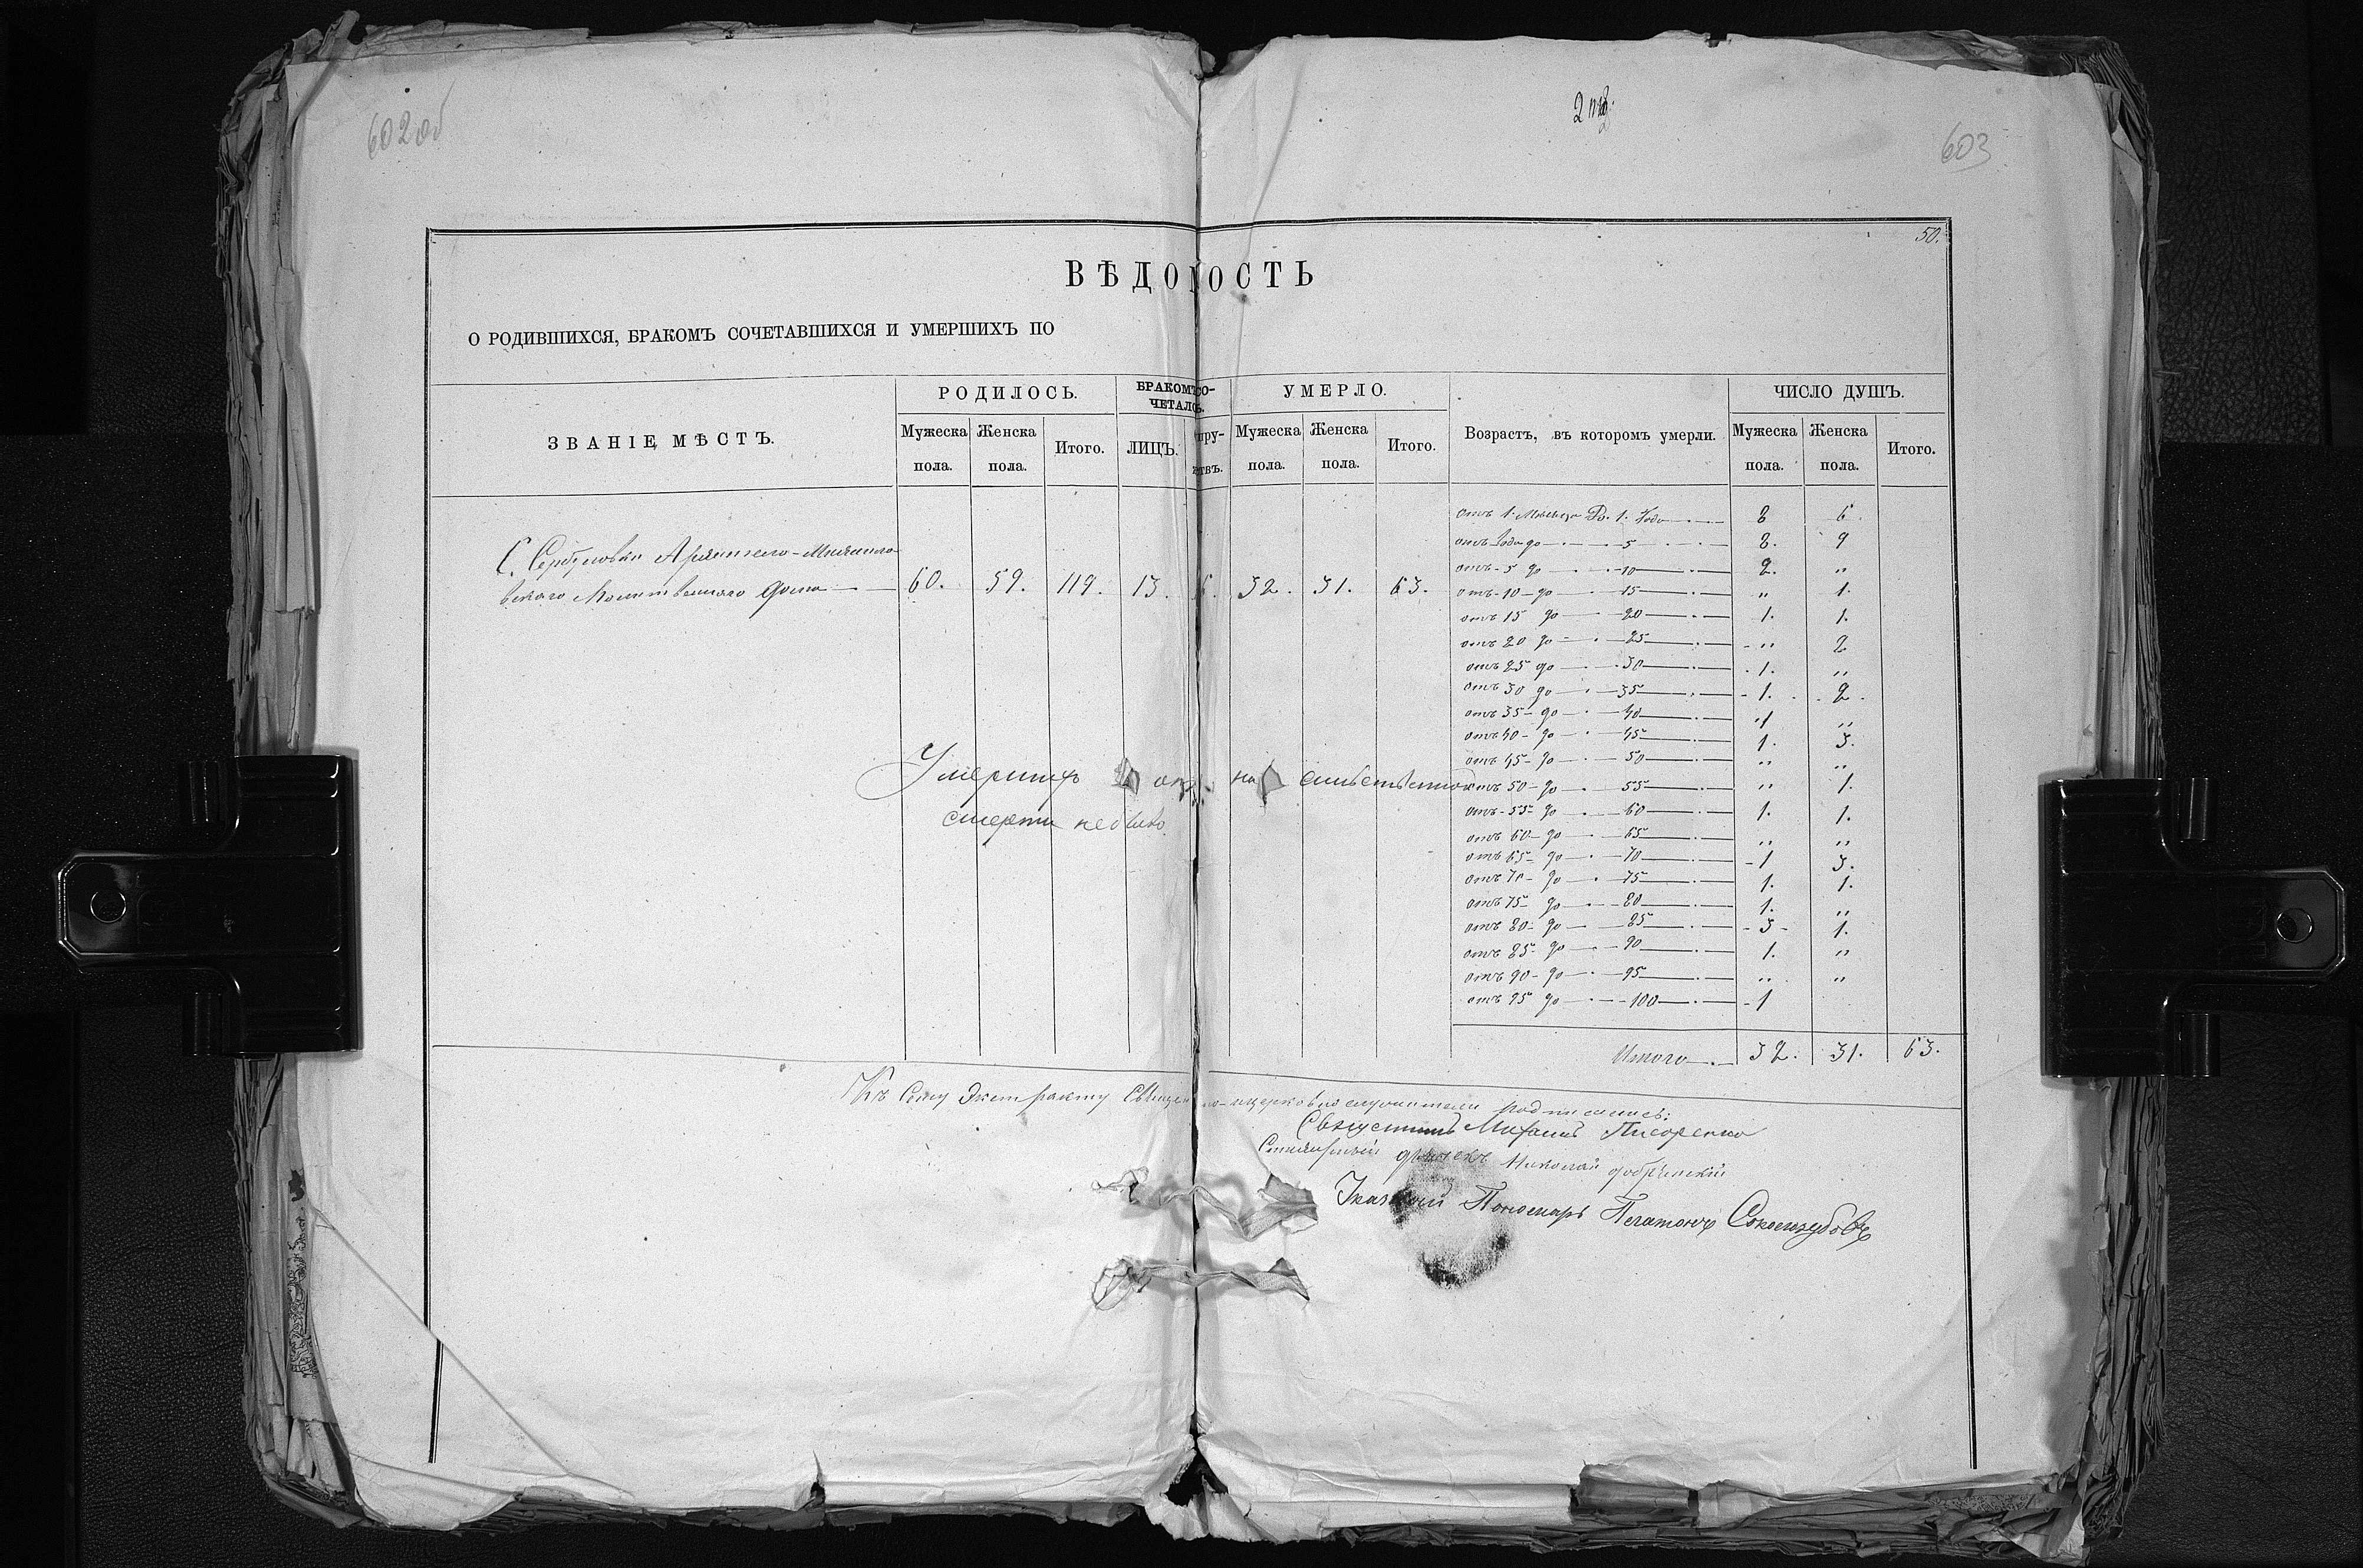 602 об
2 я
603
50.
ВѢДОМОСТЬ
О РОДИВШИХСЯ, БРАКОМЪ СОЧЕТАВШИХСЯ И УМЕРШИХЪ ПО
ЗВАНІЕ МѢСТЪ.
РОДИЛОСЬ.
БРАКОМЪ СО-
ЧЕТАЛОСЬ.
УМЕРЛО.
Возрастъ, въ которомъ умерли.
ЧИСЛО ДУШЪ.
Мужеска пола. Женска пола. Итого. ЛИЦЪ. Мужеска пола. Женска пола. Итого. Мужеска пола. Женска пола. Итого.
С. Сербуловки Архангело-Михаило-
вскаго Молитвеннаго дома 60. 59. 119. 13. 6. 32. 31. 63.
отъ 1. Мѣсяца до. 1. года 8 6.
отъ 1 года до 5 8. 9
отъ 5 до 10 2. "
отъ 10 до 15 " 1.
отъ 15 до 20 1. 1.
отъ 20 до 25 " 2
отъ 25 до 30 1. "
отъ 30 до 35 1. 2
отъ 35 до 40 1 "
отъ 40 до 45 1. 3.
отъ 45 до 50 " "
отъ 50 до 55 " 1.
отъ 55 до 60 1. 1.
отъ 60 до 65 " "
отъ 65 до 70 1 3.
отъ 70 до 75 1. 1.
отъ 75 до 80 1. "
отъ 80 до 85 3 1.
отъ 85 до 90 1. "
отъ 90 до 95 " "
отъ 95 до 100 1
Умершихъ
смерти небыло.
Итого 32. 31. 63.
Къ Сему Экстракту Священно-церковнослужители подписались:
Священникъ Михаилъ
Николай
Указный Пономарь Платонъ